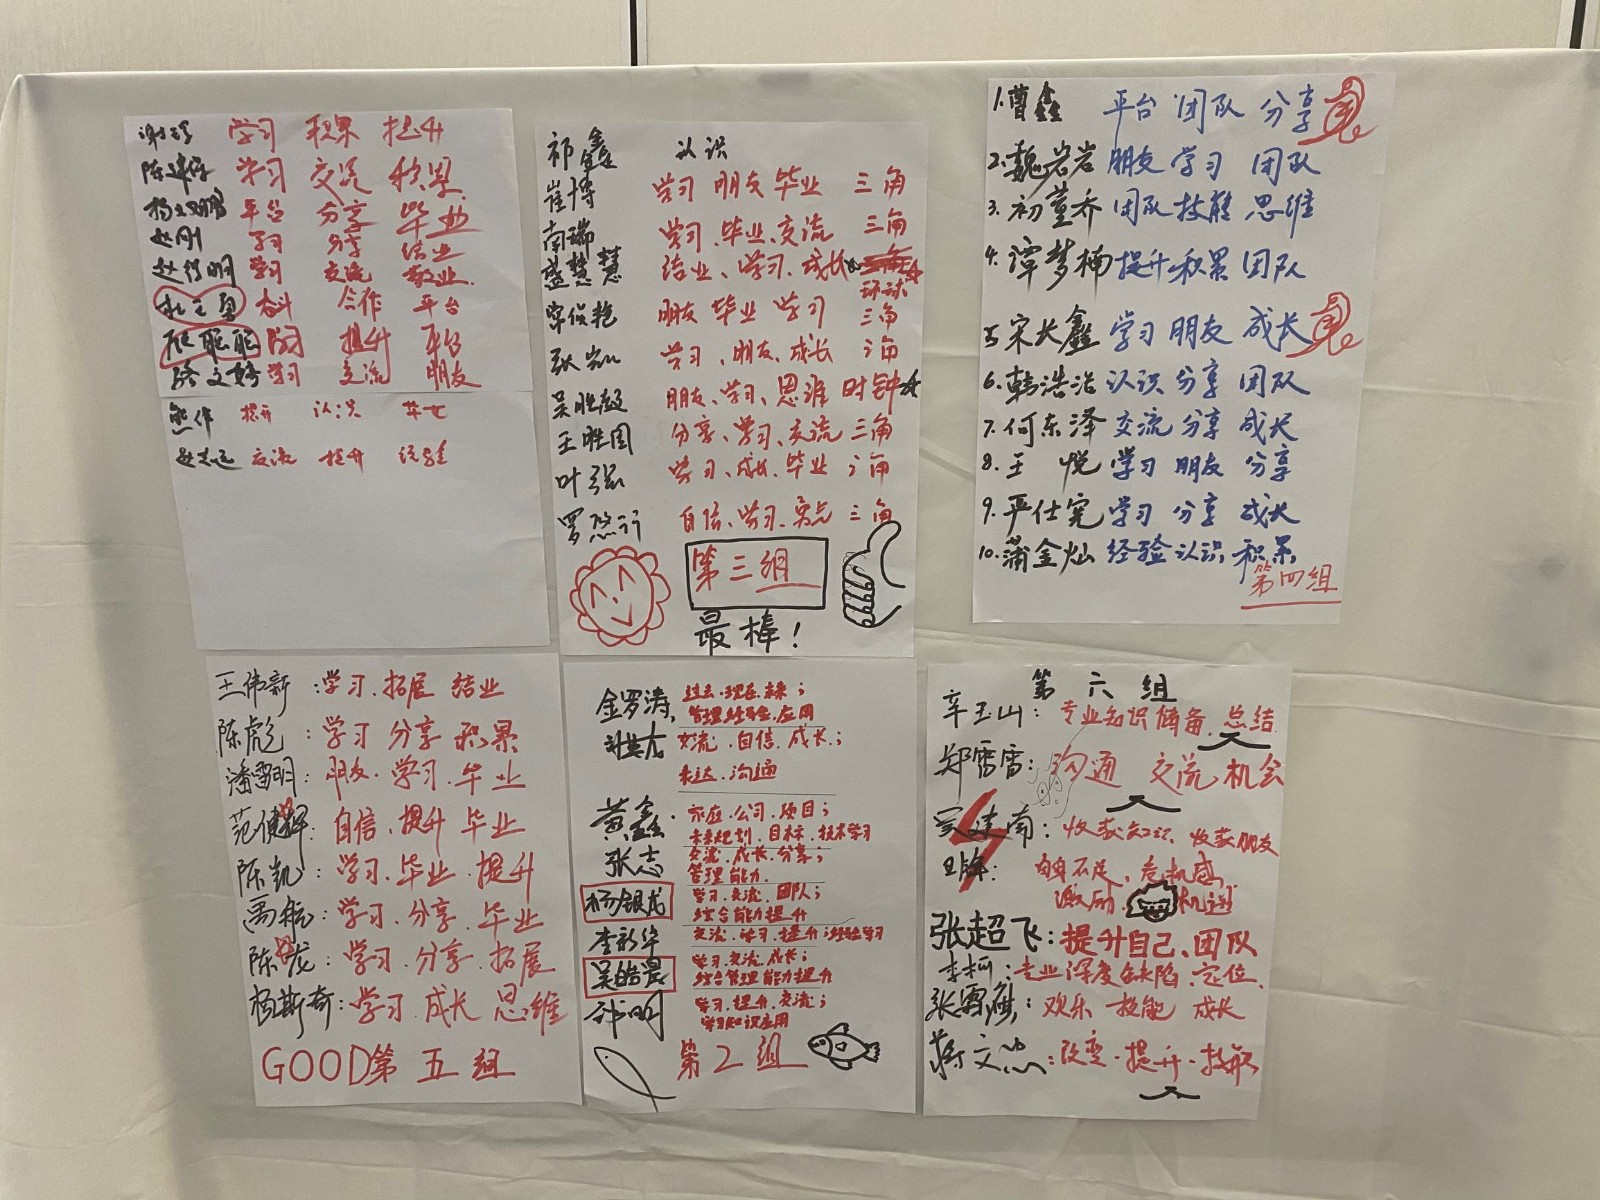 学习 积累 提升
学习 交流 积累
平台 分享 毕业
赵刚 学习 分享 结业
学习 交流 敬业
奋斗 合作 平台
提升 平台
学习 交流 朋友
熊作 提升 认识
交流 提升 经验
祁鑫 认识
崔博 学习 朋友 毕业 三角
南瑞 学习、毕业、交流 三角
盛慧慧 结业、学习、成长
环球
朋友 毕业 学习 三角
张凯 学习、朋友、成长 三角
朋友、学习、思维 时钟
王胜国 分享、学习、交流 三角
叶强 学习、成长、毕业 三角
自信、学习、 三角
第三组
最棒!
1.曹鑫 平台 团队 分享
2.魏岩岩 朋友 学习 团队
3.初董乔 团队 技能 思维
4.谭梦楠 提升 积累 团队
5.宋长鑫 学习 朋友 成长
6.韩浩浩 认识 分享 团队
7.何东泽 交流 分享 成长
8.王 悦 学习 朋友 分享
9.严仕宪 学习 分享 成长
10.蒲金灿 经验 认识 积累
第四组
王伟新:学习.拓展 结业
陈彪:学习 分享 积累
潘雪明:朋友.学习.毕业
自信.提升 毕业
陈凯:学习.毕业.提升
禹航:学习.分享.毕业
陈龙:学习.分享.拓展
杨斯奇:学习 成长 思维
GOOD第五组
金罗涛, 过去.现在.未来;
管理.经验.应用
交流.自信.成长;
表达.沟通
黄鑫. 家庭.公司.项目;
未来规划.目标.技术学习
张志 交流.成长.分享;
管理能力.
杨银龙 学习.交流.团队;
综合能力提升
李新华 交流.学习.提升;经验学习
吴皓晨 学习.交流.成长;
综合管理能力提升
学习.提升.交流;
学习知识应用
第2组
第六组
辛玉山:专业知识储备、总结
郑雷雷:沟通 交流 机会
吴建南:收获知识、收获朋友
不足、危机感
激励、机遇
张超飞:提升自己、团队
李柯:专业深度缺陷、定位、
欢乐 技能 成长
蒋文杰:改变·提升·技能